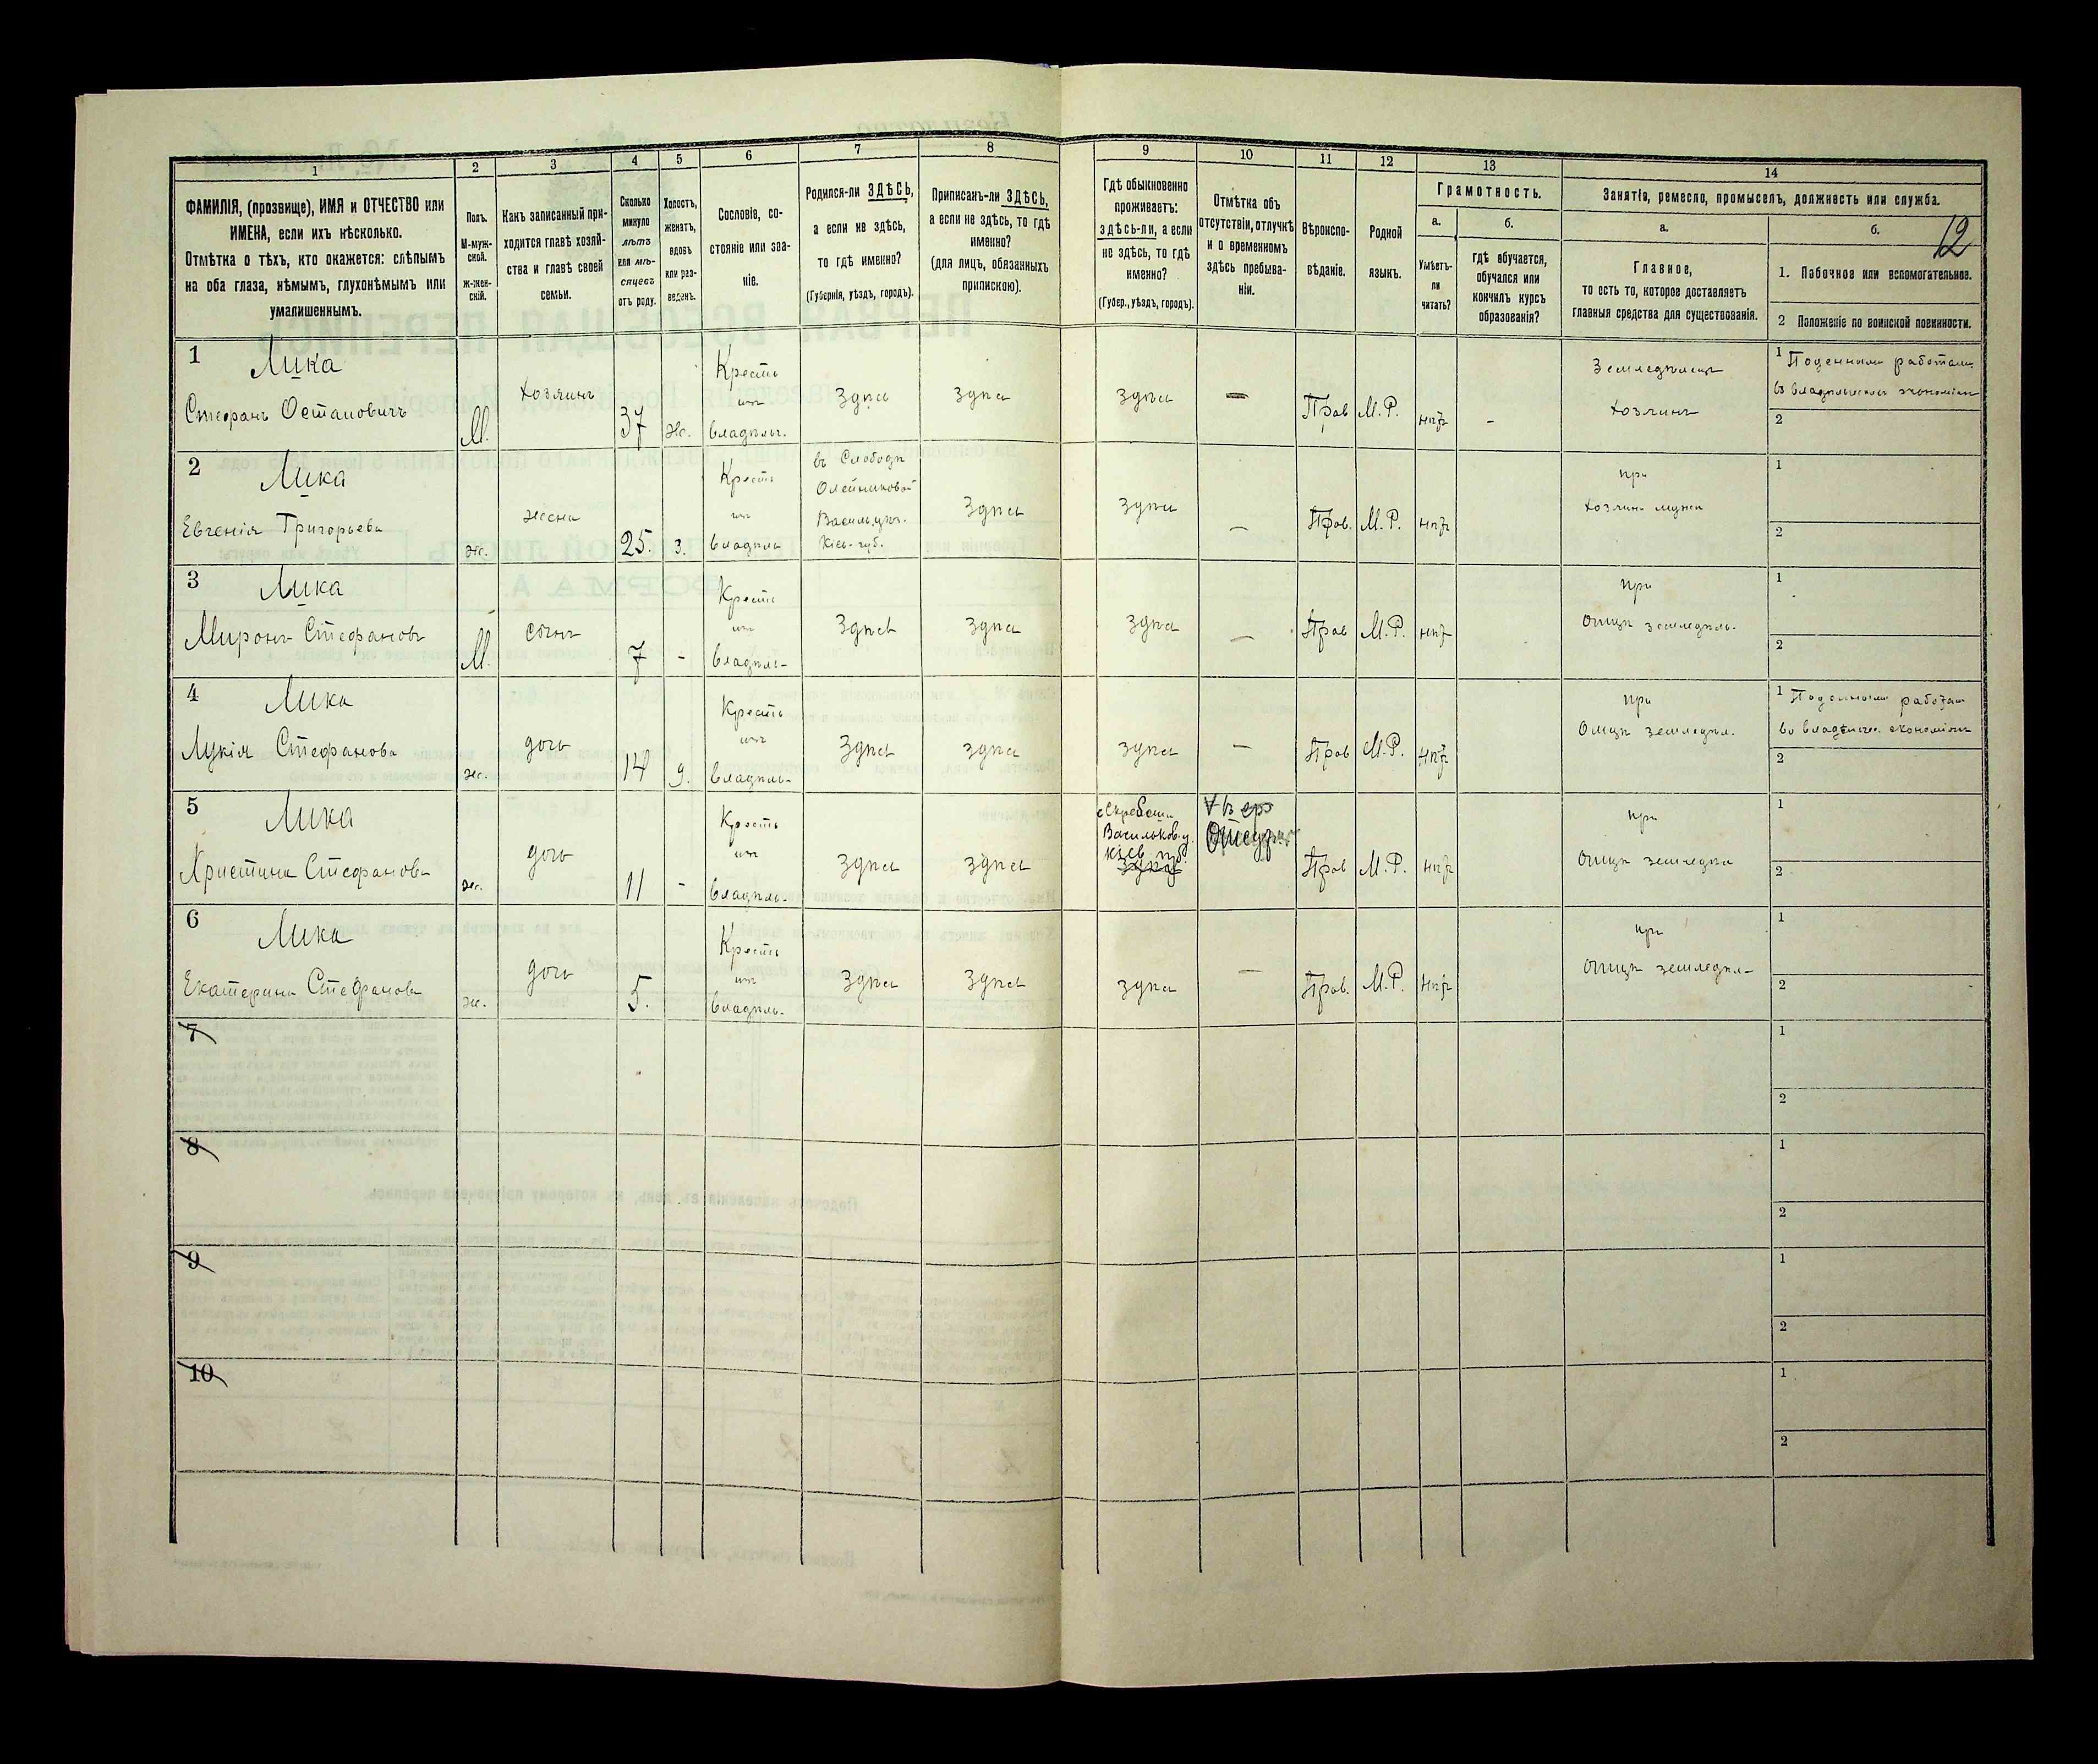 1
2
3
4
5
6
7
8
9
10
11
12
13
14
ФАМИЛІЯ, (прозвище), ИМЯ и ОТЧЕСТВО или
ИМЕНА, если ихъ нѣсколько.
Отмѣтка о тѣхъ, кто окажется: слѣпымъ
на оба глаза, нѣмымъ, глухонѣмымъ или
умалишеннымъ.
Полъ.
М-муж-
ской.
Ж-жен-
скій.
Какъ записанный при-
ходится главѣ хозяй-
ства и главѣ своей
семьи.
Сколько
минуло
лѣтъ
или мѣ-
сяцевъ
отъ роду.
Холостъ,
женатъ,
вдовъ
или раз-
веденъ.
Сословіе, со-
стояніе или зва-
ніе.
Родился-ли ЗДѢСЬ,
а если не здѣсь,
то гдѣ именно?
(Губернія, уѣздъ, городъ).
Приписанъ-ли ЗДѢСЬ,
а если не здѣсь, то гдѣ
именно?
(для лицъ, обязанныхъ
припискою).
Гдѣ обыкновенно
проживаетъ:
здѣсь-ли, а если
не здѣсь, то гдѣ
именно?
(Губер., уѣздъ, городъ).
Отмѣтка объ
отсутствіи, отлучкѣ
и о временномъ
здѣсь пребыва-
ніи.
Вѣроиспо-
вѣданіе.
Родной
языкъ.
Грамотность.
а.
Умѣетъ-
ли
читать?
б.
гдѣ обучается,
обучался или
кончилъ курсъ
образованія?
Занятія, ремесло, промыселъ, должность или служба.
а.
Главное,
то есть то, которое доставляетъ
главныя средства для существованія.
б.
12
1. Побочное или вспомогательное.
2 Положеніе по воинской повинности.
1
Лика
Стефанъ Остаповичъ
М.
Хозяинъ
37
ж.
Кресть
изъ
владѣль.
здѣсь
здѣсь
здѣсь
—
Прав
М.Р.
нѣт
-
Земледѣлецъ
Хозяинъ
1 Поденными работами
въ владѣльческ. экономіи
2
2
Лика
Евгенія Григорьева
ж.
жена
25.
з.
Кресть
изъ
владѣль
въ Слободѣ
Олейниковой
Васильк. у.
Кіев. губ.
здѣсь
здѣсь
—
Прав.
М.Р.
нѣт
при
хозяинѣ мужѣ
1
2
3
Лика
Миронъ Стефановъ
М.
сынъ
7
-
Кресть
изъ
владѣль-
здѣсь
здѣсь
здѣсь
—
Прав
М.Р.
нѣт
при
Отцѣ земледѣль.
1
2
4
Лика
Лукія Стефанова
ж.
дочь
14
д.
Кресть
изъ
владѣль-
здѣсь
здѣсь
здѣсь
—
Прав
М.Р.
нѣт
при
Отцѣ земледѣл.
1 Поденными работам
во владѣльче. економіи
2
5
Лика
Христина Стефанова
ж.
дочь
11
-
Кресть
изъ
владѣль.
здѣсь
здѣсь
Васильков. у.
Кіев. губ.
здѣсь
Прав
М.Р.
нѣт
при
Отцѣ земледѣл
1
2
6
Лика
Екатерина Стефанова
ж.
дочь
5.
Кресть
изъ
владѣль.
здѣсь
здѣсь
здѣсь
—
Прав.
М.Р.
нѣт
при
Отцѣ земледѣл-
1
2
7
1
2
8
1
2
9
1
2
10
1
2